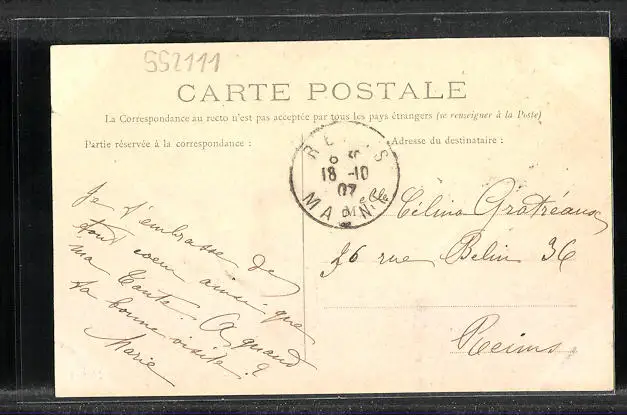 SS2111
CARTE POSTALE
La Correspondance au recto n'est pas acceptée par tous les pays étrangers (se renseigner à la Poste)
Partie réservée à la correspondance :
Adresse du destinataire :
REIMS
18 -10
07
MARNE
Je t'embrasse de
tout coeur ainsi que
ma tante. A quand
ta bonne visite ?
Marie
Mlle Célina Gratréaux
36 rue Belin 36
Reims